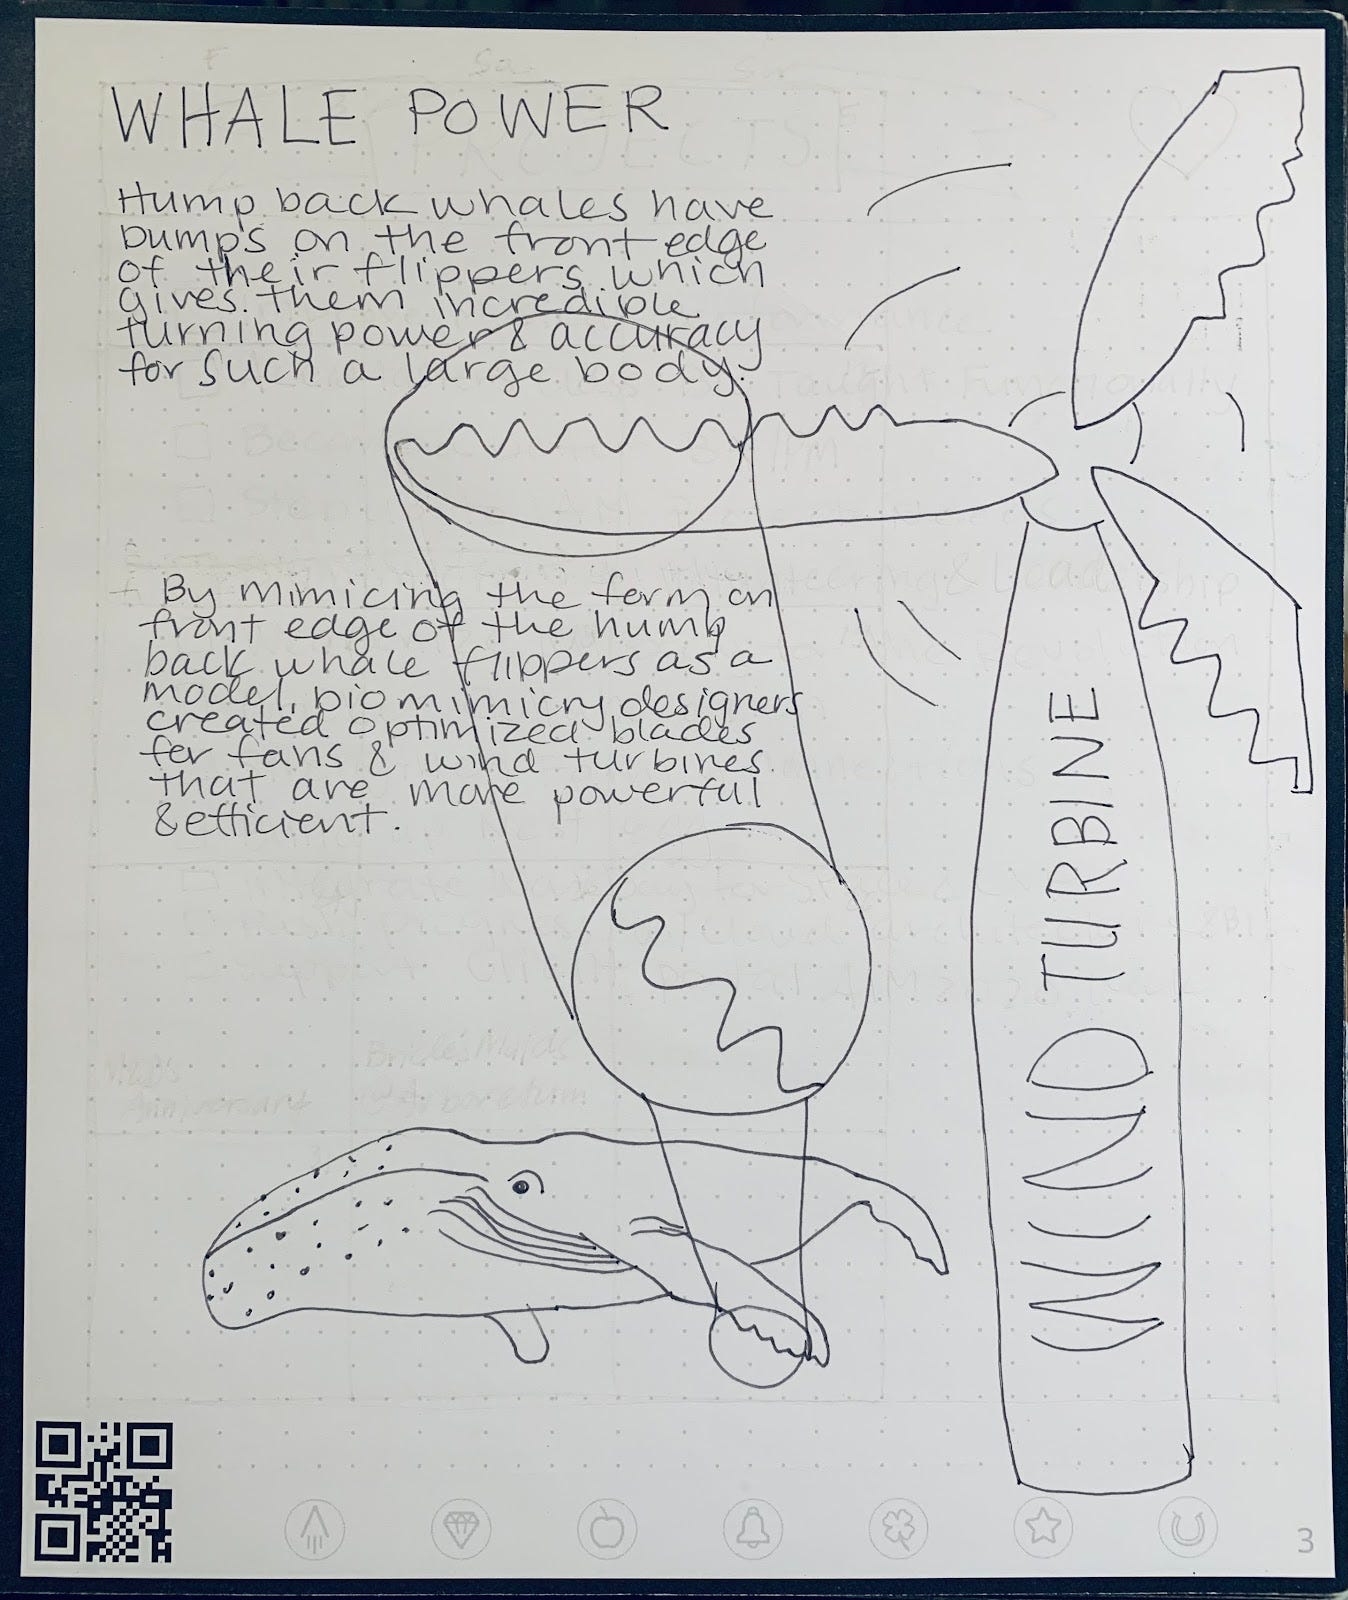 WHALE POWER
Hump back whales have
bumps on the front edge
of their flippers which
gives them incredible
turning power & accuracy
for such a large body.
By mimicing the form on
front edge of the hump
back whale flippers as a
model, biomimicry designers
created optimized blades
for fans & wind turbines
that are more powerful
& efficient.
WIND TURBINE
3